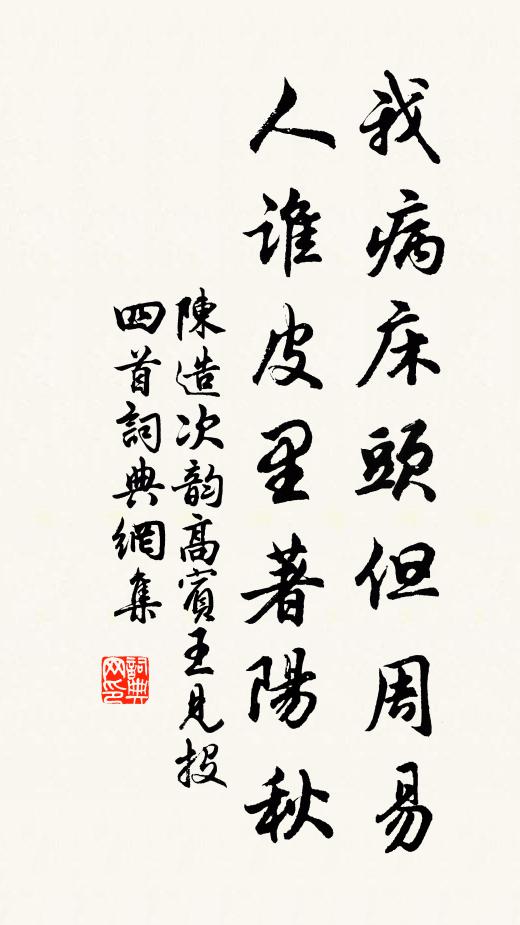 我病床頭但周易
人誰皮里著陽秋
陳造次韵高賓王見投
四首詞典網集
詞典网印